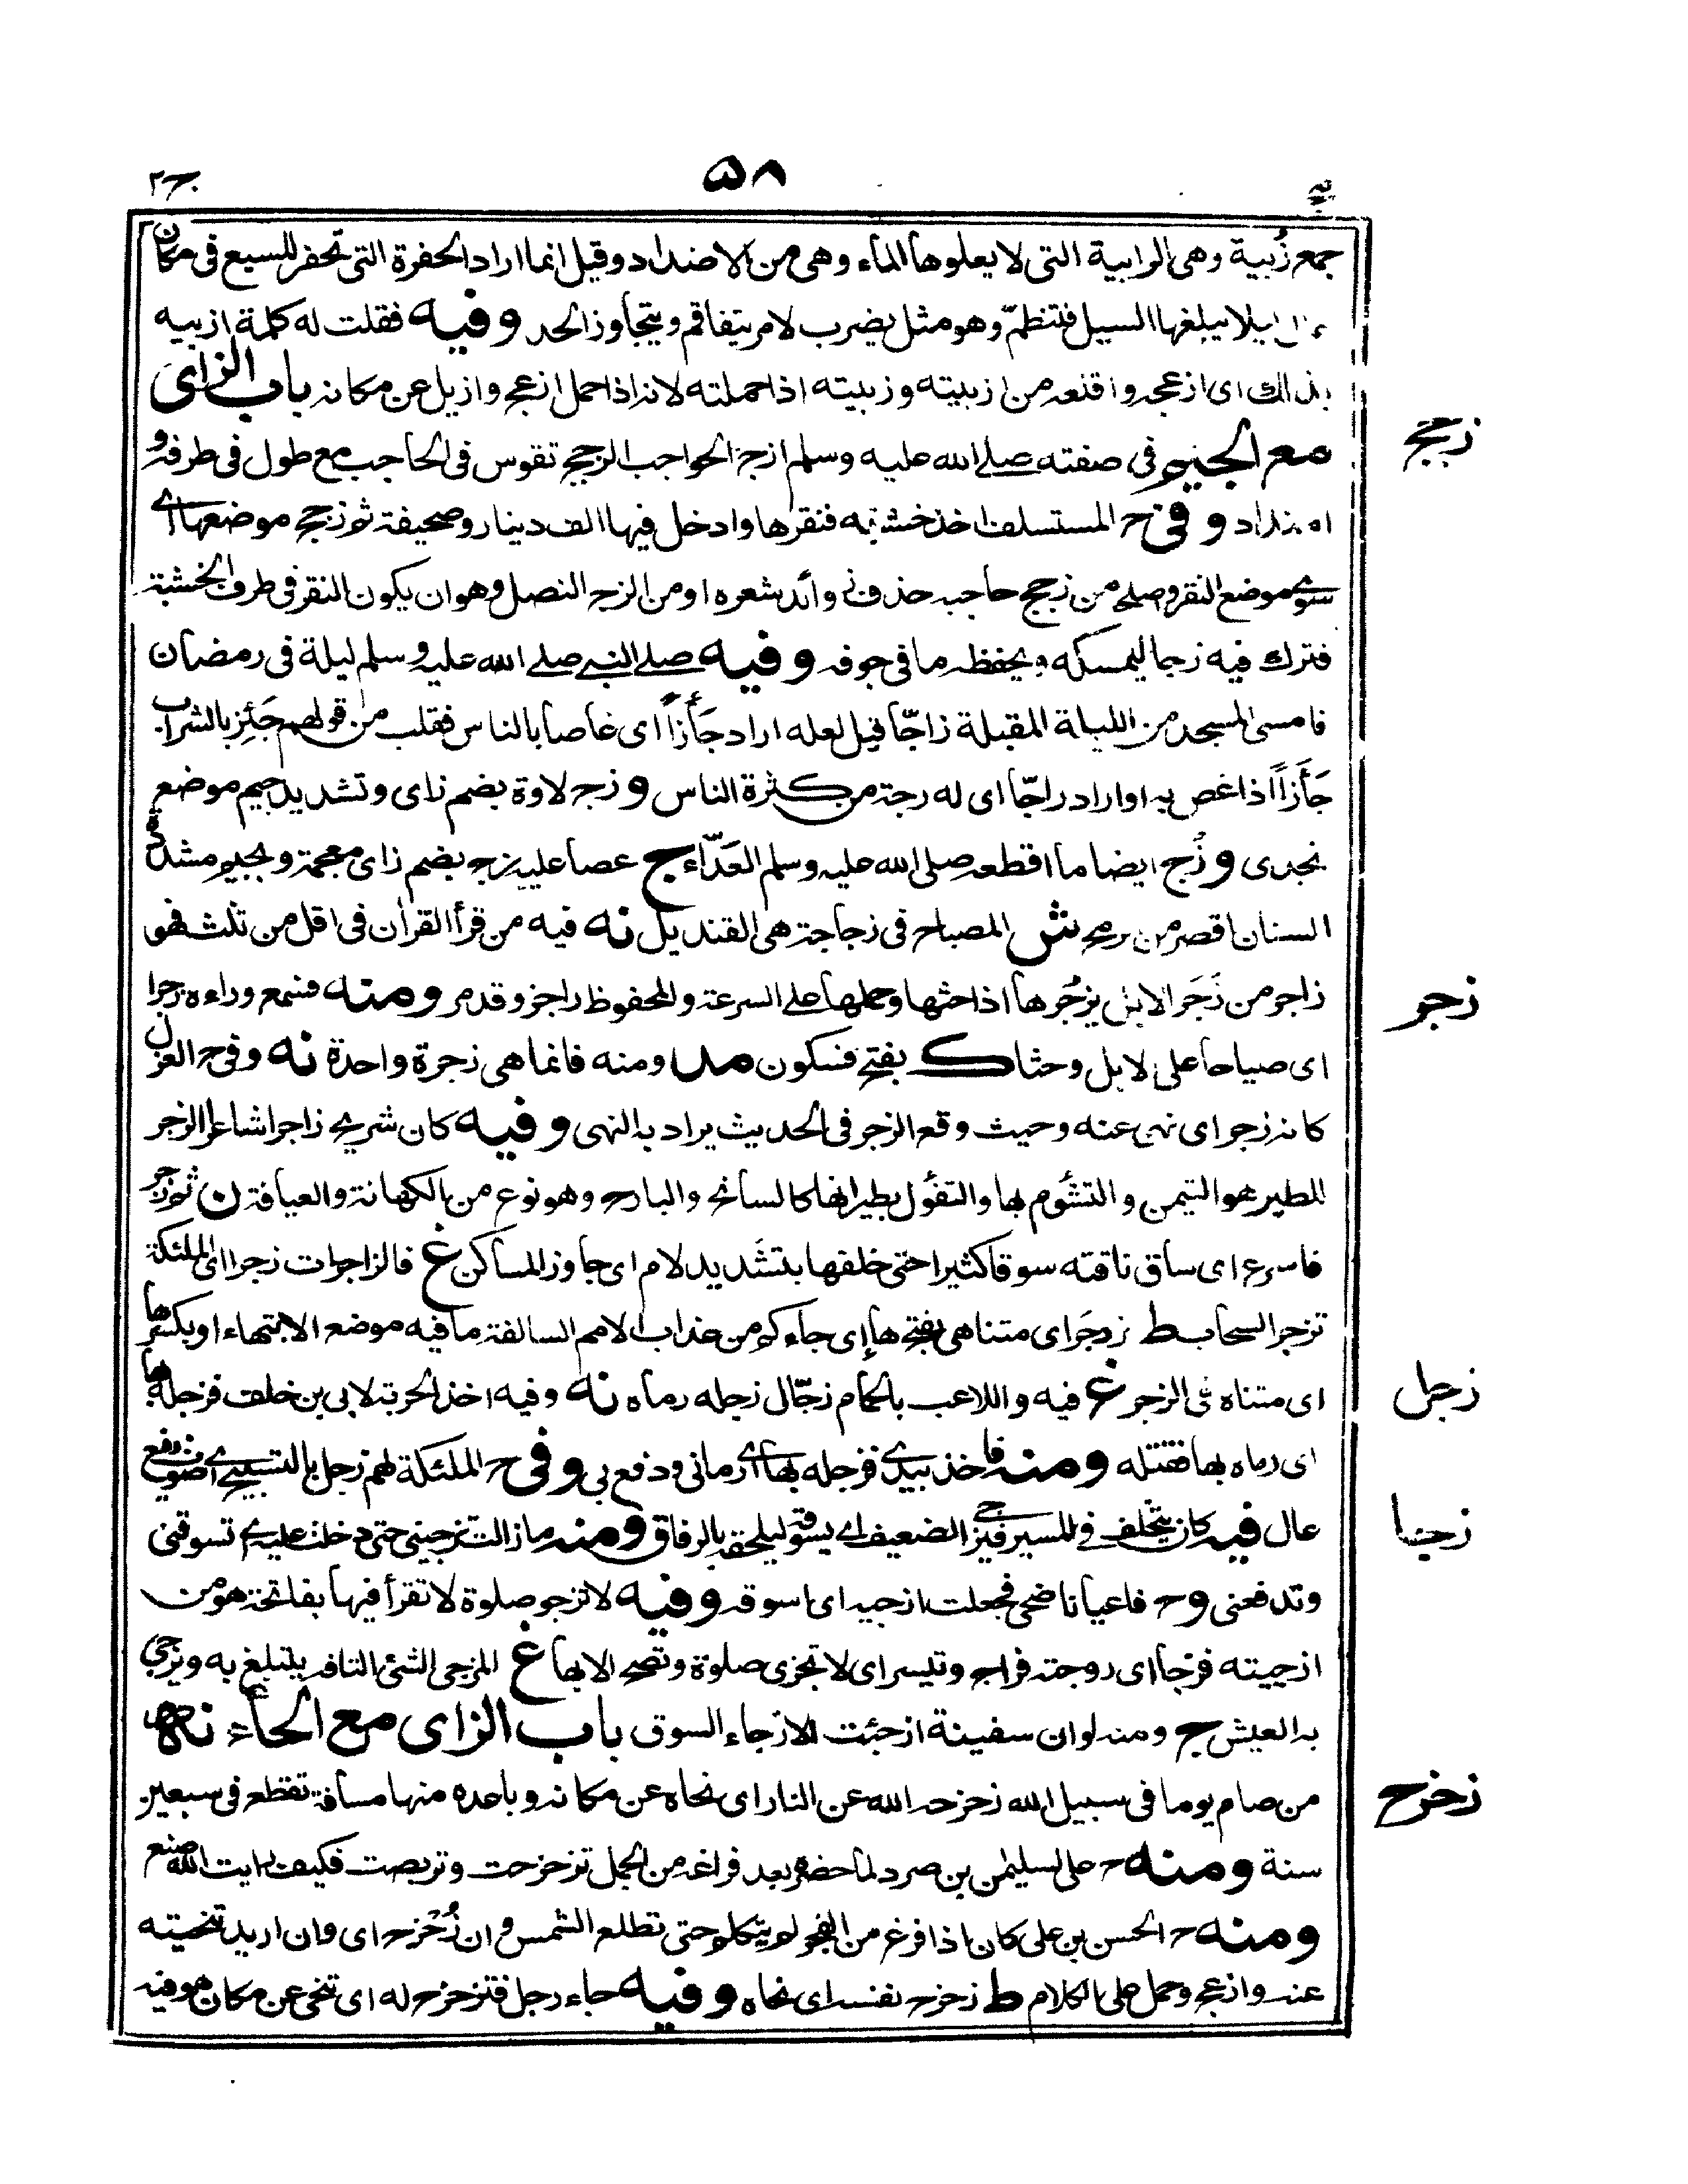 ج٢
٥٨
جمع زُبية وهى الرابية التى لا يعلوها الماء وهى من الاضداد وقيل انما اراد الحفرة التى تحفر للسبع فى مكان
يبلغها السيل فتنظمّ وهو مثل يضرب لامر يتفاقم ويتجاوز الحد وفيه فقلت له كلمة ازبيه
بذالك اى ازعجه واقنعه من ازبيته وزبيته اذا حملته لانه اذا حمل ازعج وازيل عن مكانه باب الزاى
مع الجيم فى صفته صلى الله عليه وسلم ازج الحواجب الزجج تقوس فى الحاجب مع طول فى طرفه و
زجج
امتداد وفى ح المستسلف اخذ خشبة فنقرها وادخل فيها الف دينار وصحيفة ثم زجج موضعها اى
سوى موضع النقر واصلحه من زجج حاجبه حذف زوائد شعره او من الزج النصل وهو ان يكون النقر فى طرف الخشبة
فترك فيه زجا ليمسكه ويحفظه ما فى جوفه وفيه صلى النبى صلى الله عليه وسلم ليلة فى رمضان
فامسى المسجد من الليلة المقبلة زاجّا قيل لعله اراد جَأزاً اى غاصا بالناس فقلب من قولهم جَئِز بالشراب
جَأَزاً اذا غص به او اراد راجّا اى له رجة من كثرة الناس و زج لاوة بضم زاى وتشديد جيم موضع
نجدى و زُج ايضا ما اقطعه صلى الله عليه وسلم العَدّاء ج عصا عليه زج بضم زاى معجمة وبجيم مشددة
السنان اقصر من رمح ش المصباح فى زجاجة هى القنديل نه فيه من قرأ القران فى اقل من ثلث فهو
زاجر من زَجَر الابل يزجُرها اذا حثها وحملها على السرعة والمحفوظ راجز وقد مر ومنه فسمع وراءه زجرا
زجر
اى صياحا على لابل وحثا ك بفتح فسكون مد ومنه فانما هى زجرة واحدة نه وفى ح العزل
كانه زجر اى نهى عنه وحيث وقع الزجر فى الحديث يراد به النهى وفيه كان شريح زاجرا شاعرا الزجر
للطير هو التيمن والتشؤم بها والتفؤل بطيرانها كالسانح والبارح وهو نوع من الكهانة والعيافة ن ثم زجر
فاسرع اى ساق ناقته سوقا كثيرا حتى خلفها بتشديد لام اى جاوز المساكن غ فالزاجرات زجرا اى الملئكة
تزجر السحاب ط زدجَر اى متناهى بفتح ها اى جاءكم من عذاب الامم السالفة ما فيه موضع الانتهاء او بكسرها
اى متناه فى الزجر غ فيه واللاعب بالحمام زجّال زجله رماه نه وفيه اخذ الحربة لابى بن خلف فزجله بها
زجل
اى رماه بها فقتله ومنه فاخذ بيدى فزجله بها اى رمانى ودفع بى وفى ح الملئكة لهم زجل بالتسبيح اى صوت رفيع
عال فيه كان يتخلف فى المسير فيزجى الضعيف اى يسوقه ليلحقه بالرفاق ومنه ما زالت تزجينى حتى دخلت عليه اى تسوقنى
زجا
وتدفعنى وح فاعيا ناضحى فجعلت ازجيه اى اسوقه وفيه لا تزجو صلوة لا تقرأ فيها بفاتحة هو من
ازجيته فزجا اى روجته فراج وتيسر اى لا تجزى صلوة وتصح الا بها غ المزجى الشئ التافه يتبلغ به ويزجى
به العيش ج ومنه لو ان سفينة ازجئت الازجاء السوق باب الزاى مع الحاء نه
من صام يوما فى سبيل الله زحزحه الله عن النار اى نحاه عن مكانه وباعده منها مسافة تقطع فى سبعين
زحزح
سنة ومنه ح على لسليمن بن صرد لما حضره بعد فراغه من الجمل تزحزحت وتربصت فكيف رايت الله صنع
ومنه ح الحسن بن على كان اذا فرغ من الفجر لم يتكلم حتى تطلع الشمس و ان زُحْزح اى وان اريد تنحيته
عنه وازعج وحمل على الكلام ط زحزح نفسه اى نحاه وفيه جاء رجل فتزحزح له اى تنحى عن مكان هو فيه